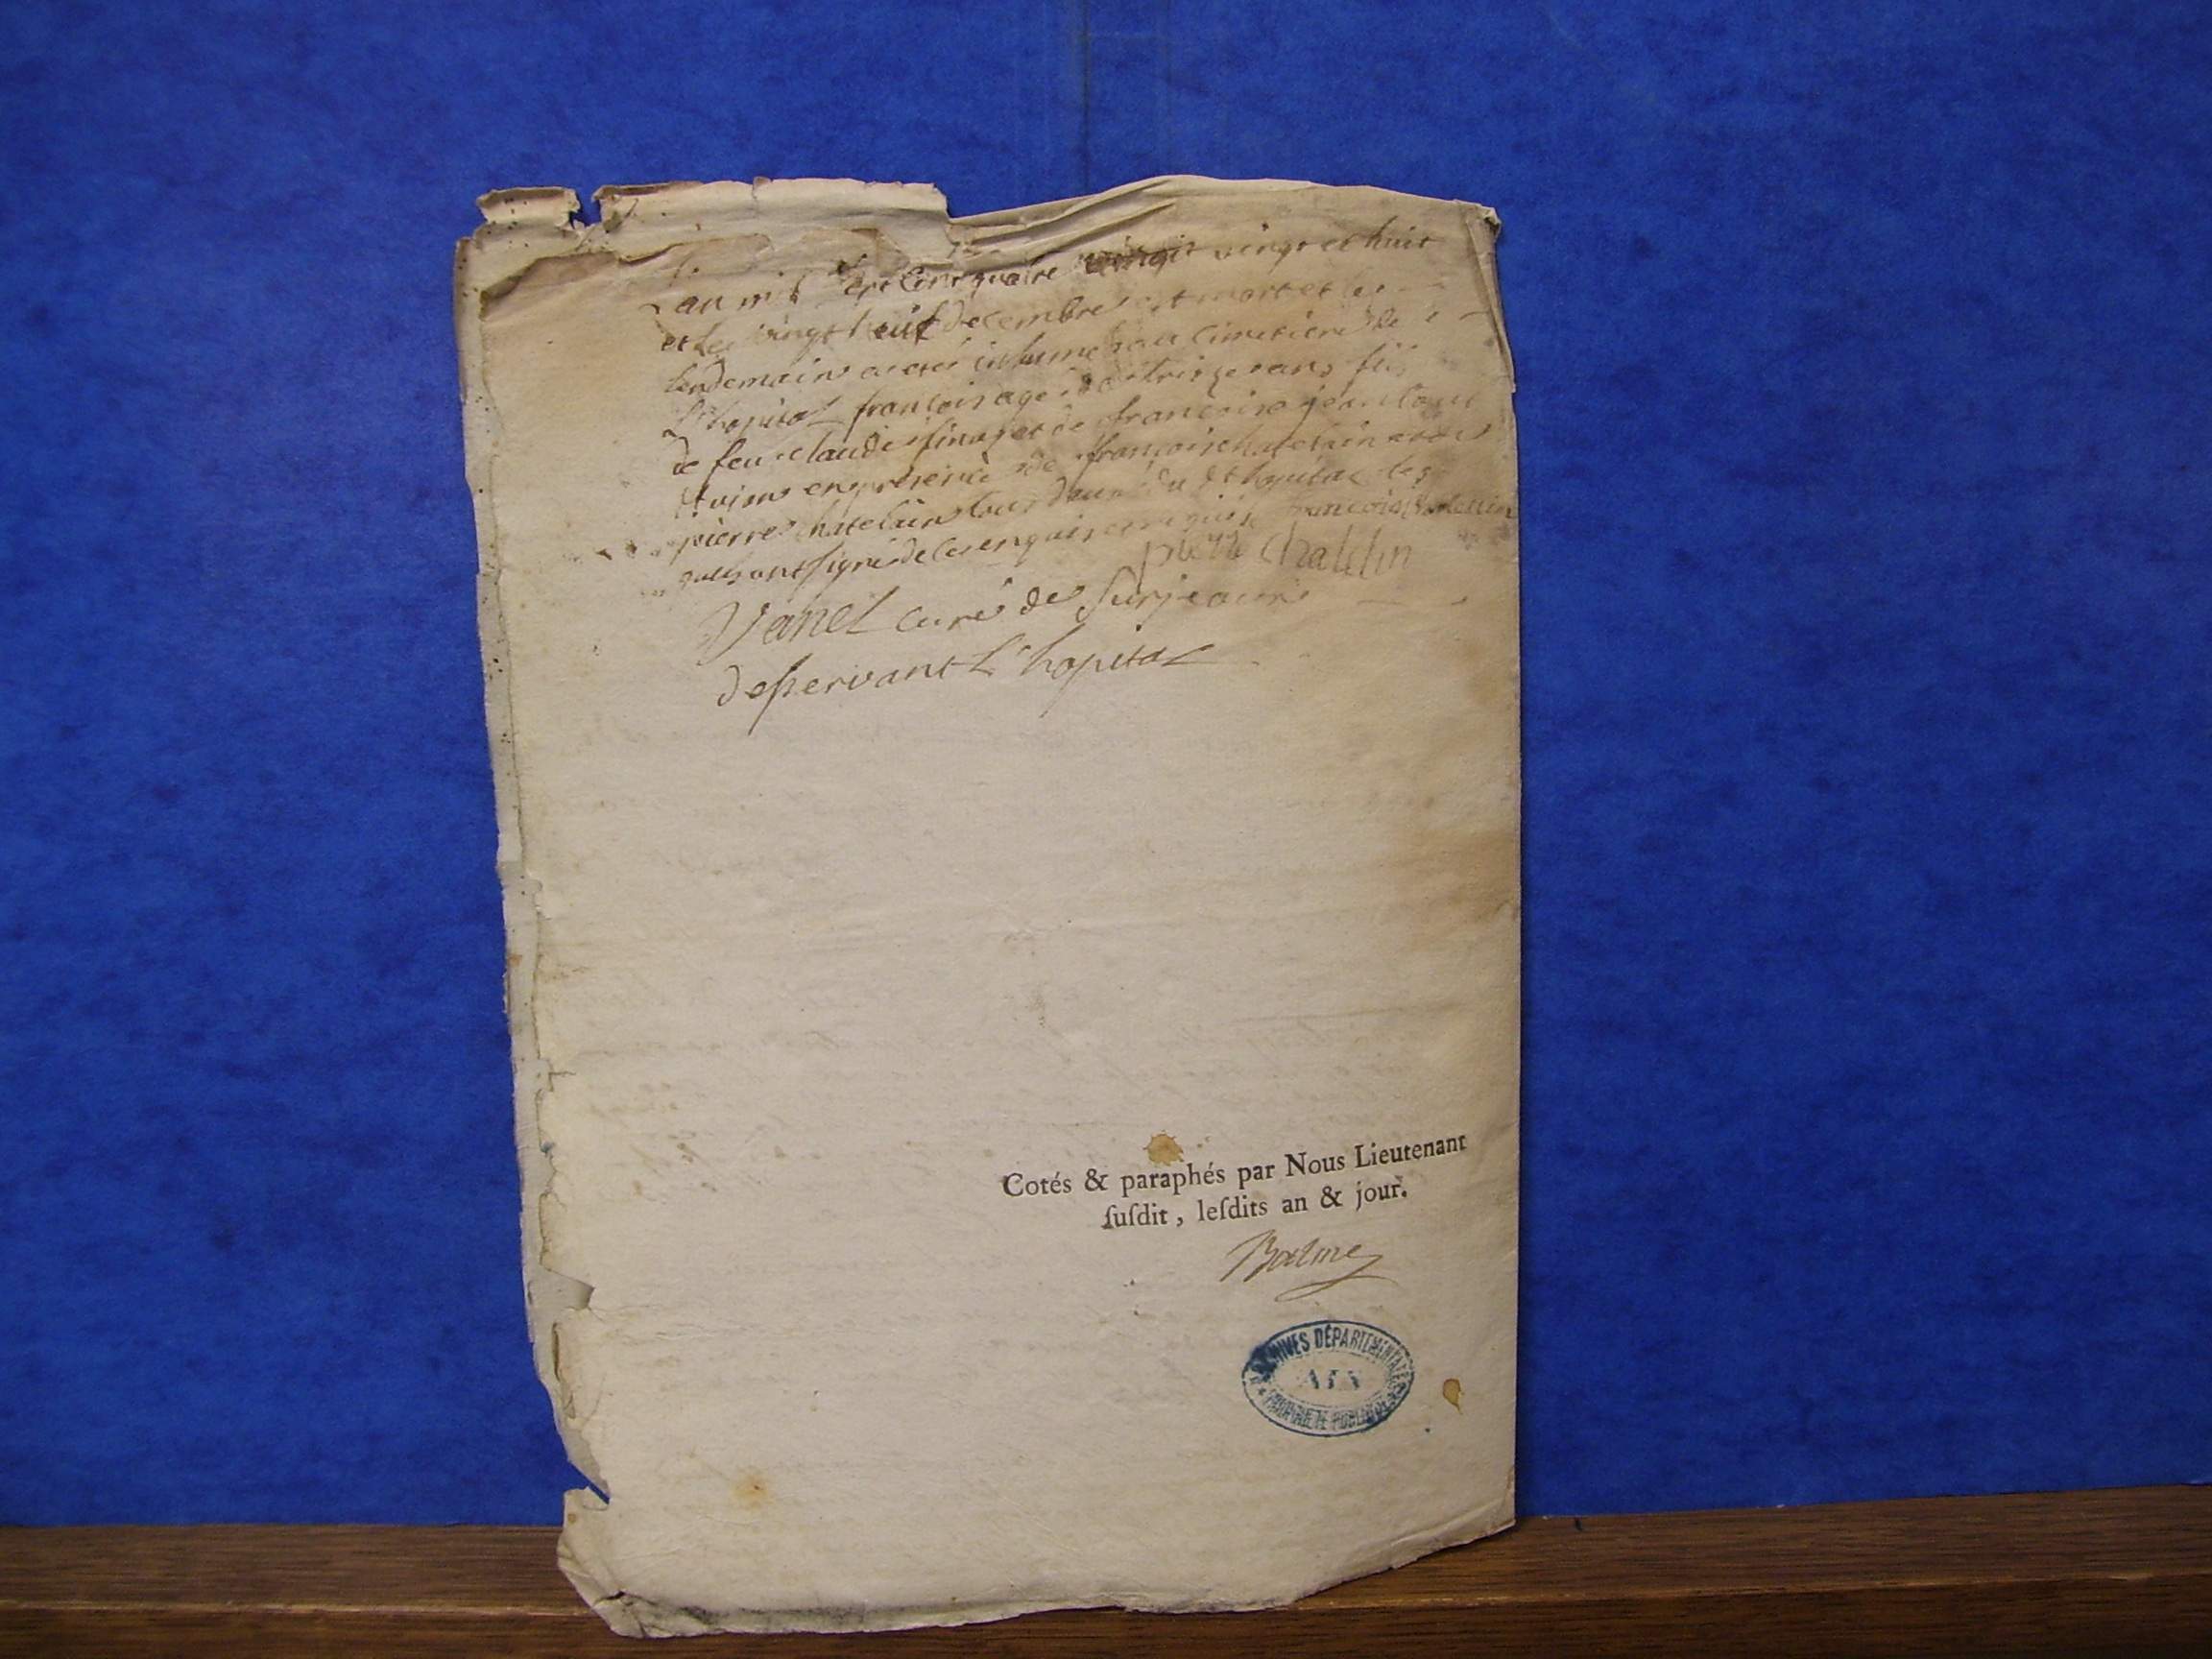 L'an mil sept cent quatre vingt et huit
et le vingt neuf decembre est mort et le
lendemain a eté inhumé au cimetiere de
L'hopital françois agé de treize ans fils
de feu claude et de francoise
en presence de françois chatelain et de
pierre chatelain tous deux du dt hopital les
quels ont signé de ce enquis et requis françois Chatelain
pierre Chatelin
Vanel curé de Surjeoux
desservant L'hopital
Cotés & paraphés par Nous Lieutenant
ſuſdit, leſdits an & jour.
Balme
ARCHIVES DÉPARTEMENTALES
AIN
PROPRIÉTÉ PUBLIQUE